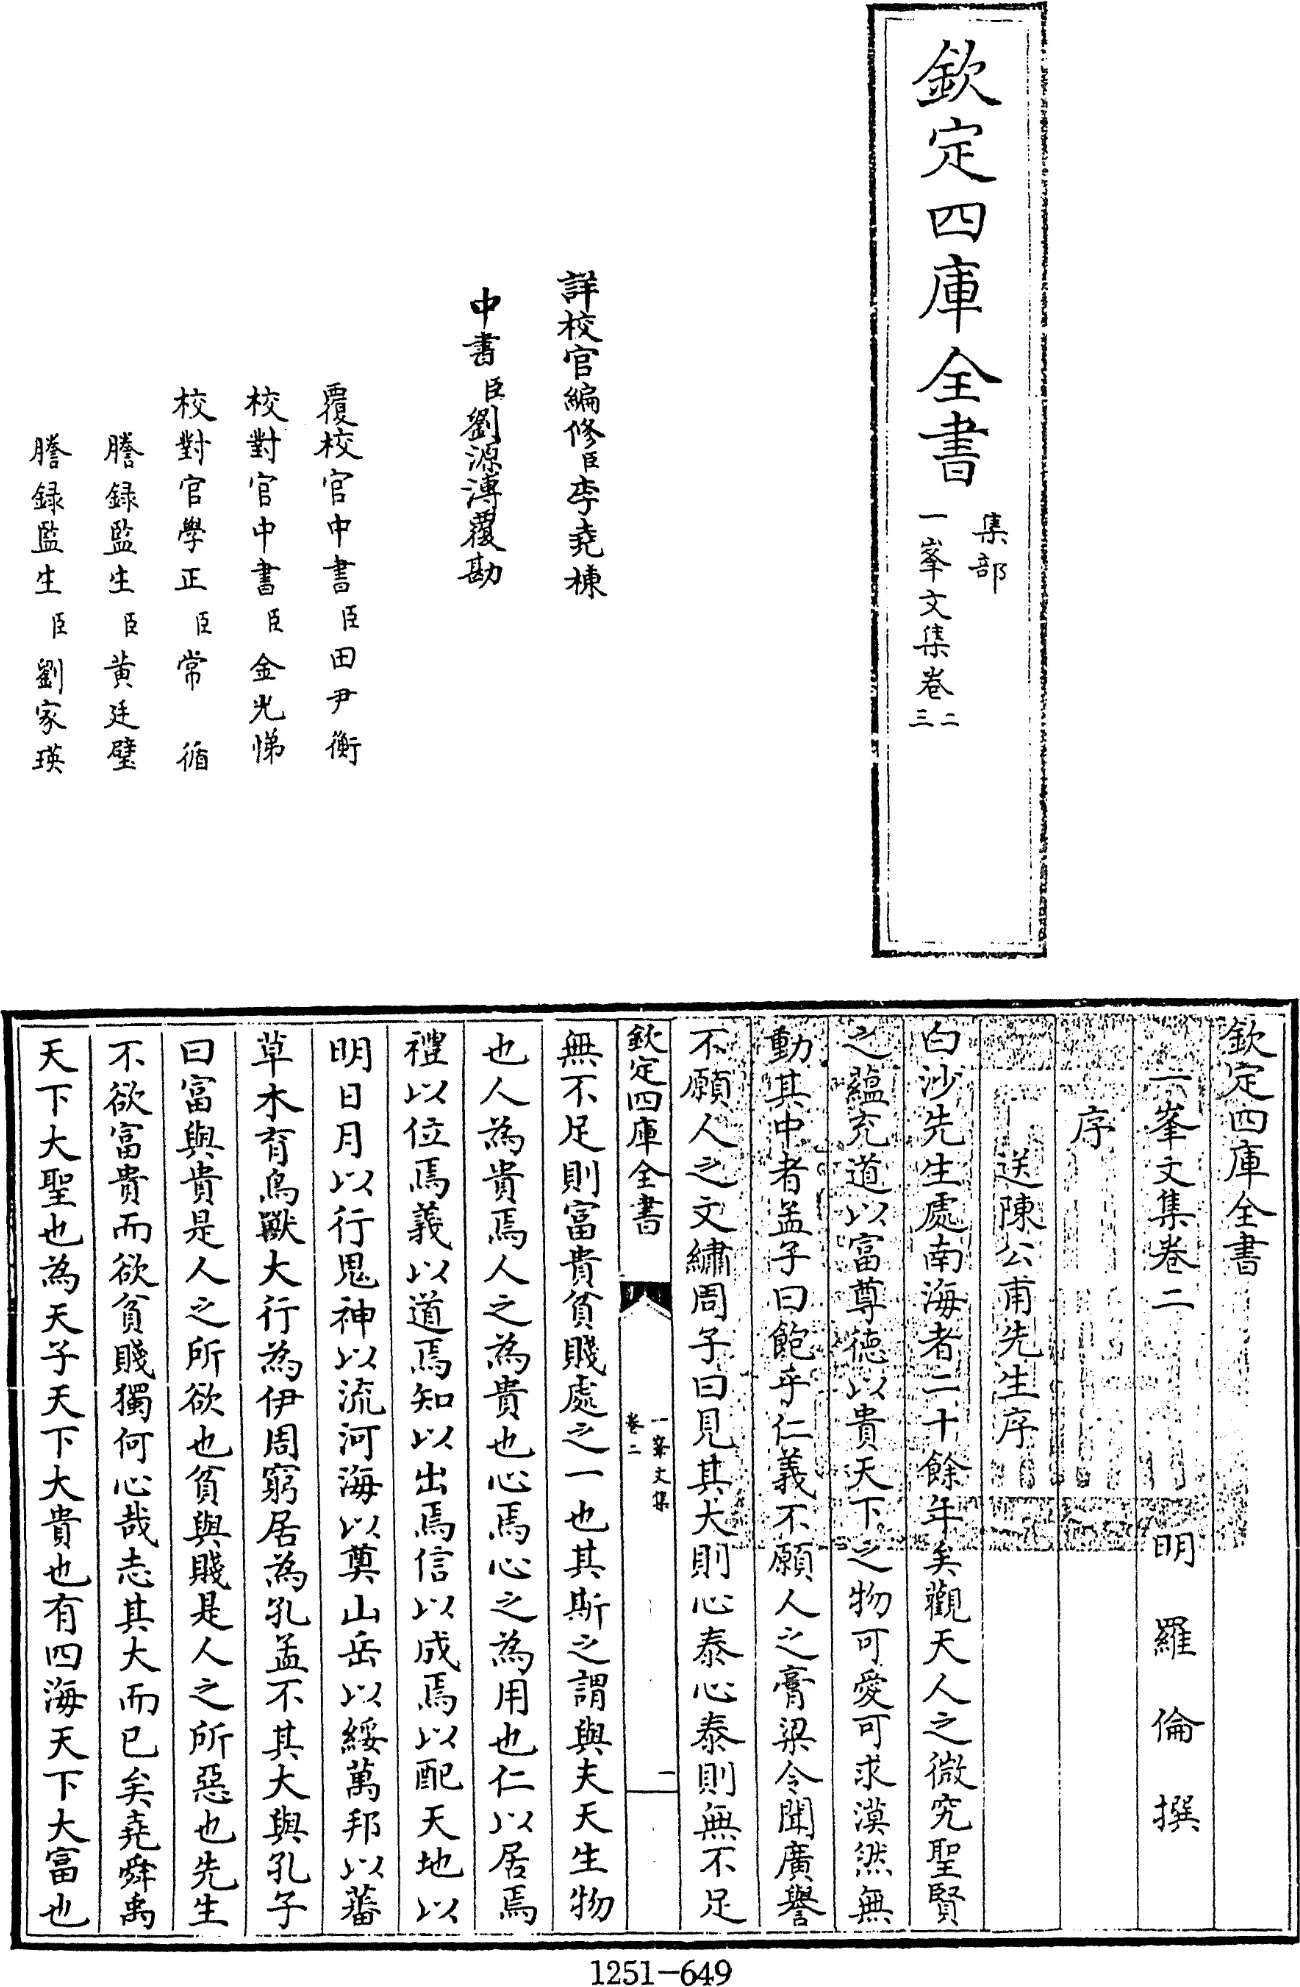 欽定四庫全書
集部
一峯文集卷二
三
詳校官編修臣李堯棟
中書臣劉源溥覆勘
覆校官中書臣田尹衡
校對官中書臣金光悌
校對官學正臣常循
謄録監生臣黄廷璧
謄録監生臣劉家瑛
欽定四庫全書
一峯文集卷二
明羅倫撰
序
送陳公甫先生序
白沙先生處南海者二十餘年矣觀天人之微究聖賢
之藴充道以富尊德以貴天下之物可愛可求漠然無
動其中者孟子曰飽乎仁義不願人之膏粱令聞廣譽
不願人之文繡周子曰見其大則心泰心泰則無不足
欽定四庫全書
一峯文集
卷二
一
無不足則富貴貧賤處之一也其斯之謂與夫天生物
也人為貴焉人之為貴也心焉心之為用也仁以居焉
禮以位焉義以道焉知以出焉信以成焉以配天地以
明日月以行鬼神以流河海以奠山岳以綏萬邦以蕃
草木育鳥獸大行為伊周窮居為孔孟不其大與孔子
曰富與貴是人之所欲也貧與賤是人之所惡也先生
不欲富貴而欲貧賤獨何心哉志其大而已矣堯舜禹
天下大聖也為天子天下大貴也有四海天下大富也
1251-649